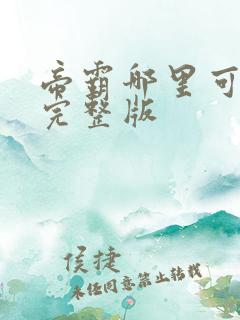 帝霸哪里可
完整版
侯捷
未经同意禁止转载